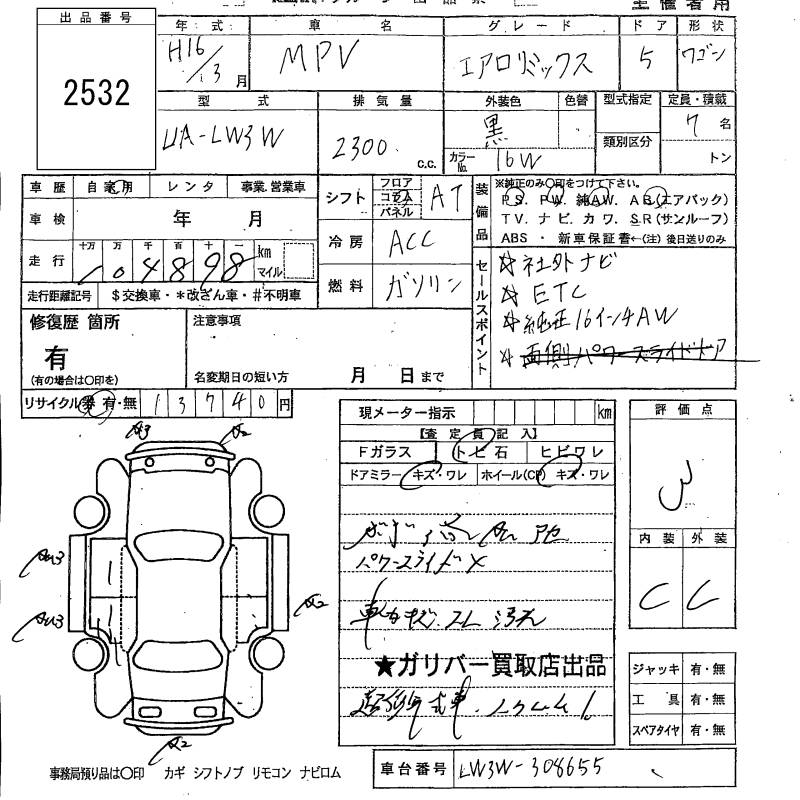 主催者用
出品番号
2532
年式 車名 グレード ドア 形状
H16/3月 MPV エアロリミックス 5 ワゴン
型式 排気量 外装色 色替 型式指定 定員・積載
UA-LW3W 2300 c.c. 黒 カラーNo. 16W 類別区分 7名
トン
車歴 自家用 レンタ 事業.営業車
車検 年 月
走行 十万 万 千 百 十 一 km マイル
104898
走行距離記号 $交換車・*改ざん車・#不明車
シフト フロア コラム パネル AT
冷房 ACC
燃料 ガソリン
装備品
※純正のみ〇印をつけて下さい。
PS. PW. 純AW. AB(エアバック)
TV. ナビ. カワ. SR(サンルーフ)
ABS ・ 新車保証書←(注) 後日送りのみ
セールスポイント
☆社外ナビ
☆ETC
☆純正16インチAW
☆両側パワースライドドア
修復歴 箇所
有
(有の場合は〇印を)
注意事項
名変期日の短い方 月 日まで
リサイクル券 有・無 13740円
現メーター指示 km
【査定員記入】
Fガラス トビ石 ヒビワレ
ドアミラー キズ・ワレ ホイール(CP) キズ・ワレ
パワースライド×
★ガリバー買取店出品
評価点
3
内装 外装
C C
ジャッキ 有・無
工具 有・無
スペアタイヤ 有・無
A3 A2
AU3
AU3
A2
A2
事務局預り品は〇印 カギ シフトノブ リモコン ナビロム
車台番号 LW3W-308655